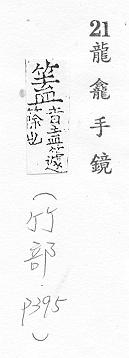 21 龍龕手鏡
篕音盍籧
篨也
(竹部.p395)